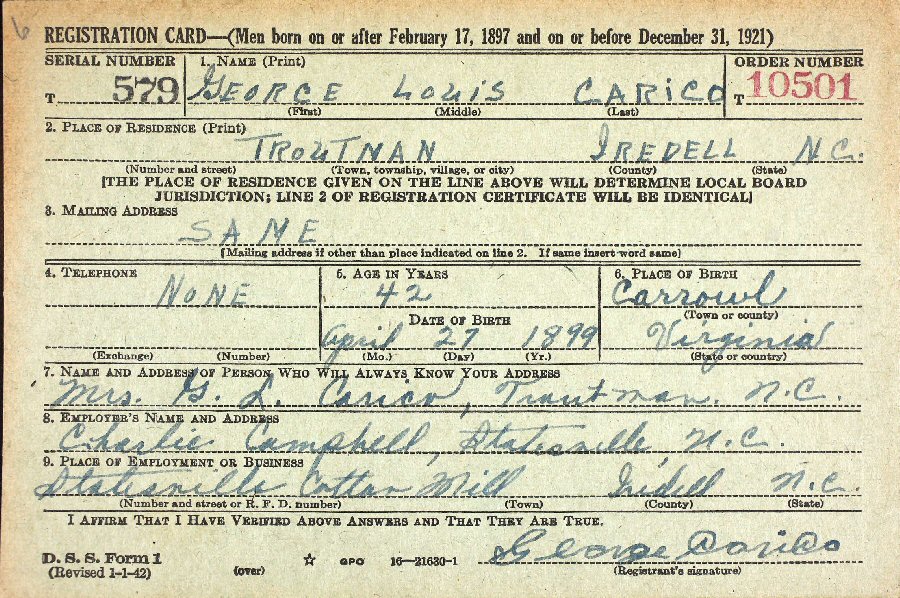 6
REGISTRATION CARD—(Men born on or after February 17, 1897 and on or before December 31, 1921)
SERIAL NUMBER
T 579
1. NAME (Print)
GEORGE LOUIS CARICO
(First) (Middle) (Last)
ORDER NUMBER
T 10501
2. PLACE OF RESIDENCE (Print)
TROUTMAN IREDELL N.C.
(Number and street) (Town, township, village, or city) (County) (State)
[THE PLACE OF RESIDENCE GIVEN ON THE LINE ABOVE WILL DETERMINE LOCAL BOARD
JURISDICTION; LINE 2 OF REGISTRATION CERTIFICATE WILL BE IDENTICAL]
3. MAILING ADDRESS
SAME
[Mailing address if other than place indicated on line 2. If same insert word same]
4. TELEPHONE
NONE
(Exchange) (Number)
5. AGE IN YEARS
42
DATE OF BIRTH
April 27 1899
(Mo.) (Day) (Yr.)
6. PLACE OF BIRTH
Carrowl
(Town or county)
Virginia
(State or country)
7. NAME AND ADDRESS OF PERSON WHO WILL ALWAYS KNOW YOUR ADDRESS
Mrs. G. L. Carico, Troutman. N.C.
8. EMPLOYER'S NAME AND ADDRESS
Charlie Campbell, Statesville, N.C.
9. PLACE OF EMPLOYMENT OR BUSINESS
Statesville Cotton Mill Iredell N.C.
(Number and street or R. F. D. number) (Town) (County) (State)
I AFFIRM THAT I HAVE VERIFIED ABOVE ANSWERS AND THAT THEY ARE TRUE.
D. S. S. Form 1
(Revised 1-1-42) (over) ☆ GPO 16—21630-1
George Carico
(Registrant's signature)